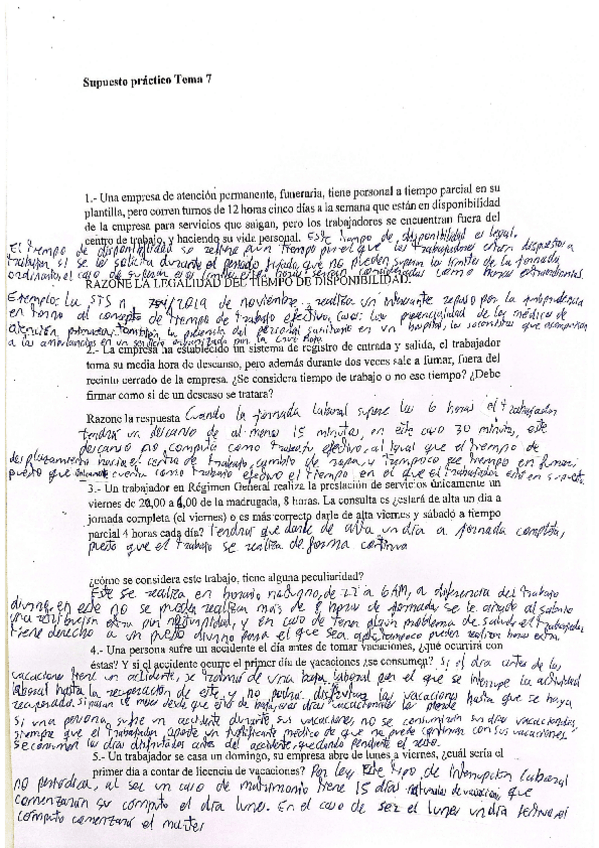 Supuesto práctico Tema 7
1.- Una empresa de atención permanente, funeraria, tiene personal a tiempo parcial en su
plantilla, pero corren turnos de 12 horas cinco días a la semana que están en disponibilidad
de la empresa para servicios que salgan, pero los trabajadores se encuentran fuera del
centro de trabajo, y haciendo su vida personal. Este tiempo de disponibilidad es legal.
El tiempo de disponibilidad se refiere a un tiempo por el que los trabajadores están dispuestos a
trabajar si se les solicita durante el periodo fijado, que no pueden superar los límites de la jornada
ordinaria, el caso de superar ese límite estas horas serían consideradas como horas extraordinarias.
RAZONE LA LEGALIDAD DEL TIEMPO DE DISPONIBILIDAD.
Ejemplo: La STS n 2019 de noviembre realiza un interesante repaso por la jurisprudencia
en torno al concepto de tiempo de trabajo efectivo, casos: la presencialidad de los médicos de
atención primaria, también la presencia del personal sanitario en un hospital, los socorristas que acompañan
a las ambulancias en un servicio organizado por la Cruz Roja.
2.- La empresa ha establecido un sistema de registro de entrada y salida, el trabajador
toma su media hora de descanso, pero además durante dos veces sale a fumar, fuera del
recinto cerrado de la empresa. ¿Se considera tiempo de trabajo o no ese tiempo? ¿Debe
firmar como si de un descaso se tratara?
Razone la respuesta Cuando la jornada laboral supere las 6 horas el trabajador
tendrá un descanso de al menos 15 minutos, en este caso 30 minutos, este
descanso no computa como trabajo efectivo, al igual que el tiempo de
desplazamiento hacia el centro de trabajo, cambio de ropa, y tampoco ese tiempo en fumar,
puesto que cuenta como trabajo efectivo el tiempo en el que el trabajador esté en su puesto.
3.- Un trabajador en Régimen General realiza la prestación de servicios únicamente un
viernes de 20,00 a 6,00 de la madrugada, 8 horas. La consulta es ¿estará de alta un día a
jornada completa (el viernes) o es más correcto darle de alta viernes y sábado a tiempo
parcial 4 horas cada día? Tendrá que darle de alta un día a jornada completa,
puesto que el trabajo se realiza de forma continua
¿cómo se considera este trabajo, tiene alguna peculiaridad?
Este se realiza en horario nocturno, de 22 a 6 AM, a diferencia del trabajo
diurno, en este no se pueden realizar más de 8 horas de jornada, se le añade al salario
una retribución extra por nocturnidad, y en caso de tener algún problema de salud el trabajador
tiene derecho a un puesto diurno para el que sea apto, tampoco pueden realizar horas extra.
4.- Una persona sufre un accidente el día antes de tomar vacaciones, ¿qué ocurrirá con
éstas? Y si el accidente ocurre el primer día de vacaciones ¿se consumen? Si el día antes de las
vacaciones tiene un accidente, se tratará de una baja laboral por el que se interrumpe la actividad
laboral hasta la recuperación de este, y no podrá disfrutar las vacaciones hasta que se haya
recuperado.
Si una persona sufre un accidente durante sus vacaciones, no se consumirán sus días vacacionales,
siempre que el trabajador aporte un justificante médico de que no puede continuar con sus vacaciones.
Se consumen los días disfrutados antes del accidente, quedando pendiente el resto.
5.- Un trabajador se casa un domingo, su empresa abre de lunes a viernes, ¿cuál sería el
primer día a contar de licencia de vacaciones? Por ley este tipo de interrupción laboral
no periódica, al ser un caso de matrimonio tiene 15 días naturales de vacaciones, que
comenzarán su cómputo el día lunes. En el caso de ser el lunes un día festivo, el
cómputo comenzará el martes